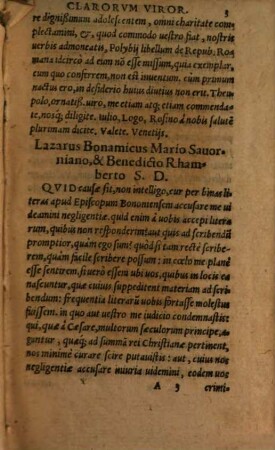 CLARORVM VIROR. 3
re dignißimum adolescentem, omni charitate com-
plectamini, ex, quod commodo uestro fiat, nostris
uerbis admoneatis, Polybij libellum de Repub. Ro-
mana idcirco ad eum nõ esse missum, quia exemplar,
cum quo conferrem, non est inuentum. cum primum
nactus ero, in describendo huius diutius non erit. Theu-
polo, ornatiß. uiro, me etiam atq; etiam commenda-
te, nosq; diligite. iulio, Logo, Rosino à nobis salutẽ
plurimam dicite. Valete. Venetijs.
Lazarus Bonamicus Mario Sauor-
niano, & Benedicto Rham-
berto S. D.
QVID causæ sit, non intelligo, cur per binas lit-
teras apud Episcopum Bononiensem accusare me ui-
deamini negligentiæ. quid enim à uobis accepi litera-
rum, quibus non responderim? aut quis ad scribendũ
promptior, quàm ego sum? quòd si tam rectè scribe-
rem, quàm facilè scribere possum: in cœlo me planè
esse sentirem. si uerò essem ubi uos, quibus in locis ea
nascuntur, quæ cuiuis suppeditent materiam ad scri-
bendum: frequentia literarũ uobis fortasse molestus
fuissem. in quo aut uestro me iudicio condemnastis:
qui, quæ à Cæsare, multorum sæculorum principe, a-
guntur, quæq; ad summã rei Christianæ pertinent,
nos minimè curare scire putauistis: aut, cuius nos
negligentiæ accusare iniuria uidemini, eodem uos
A 3 crimi-